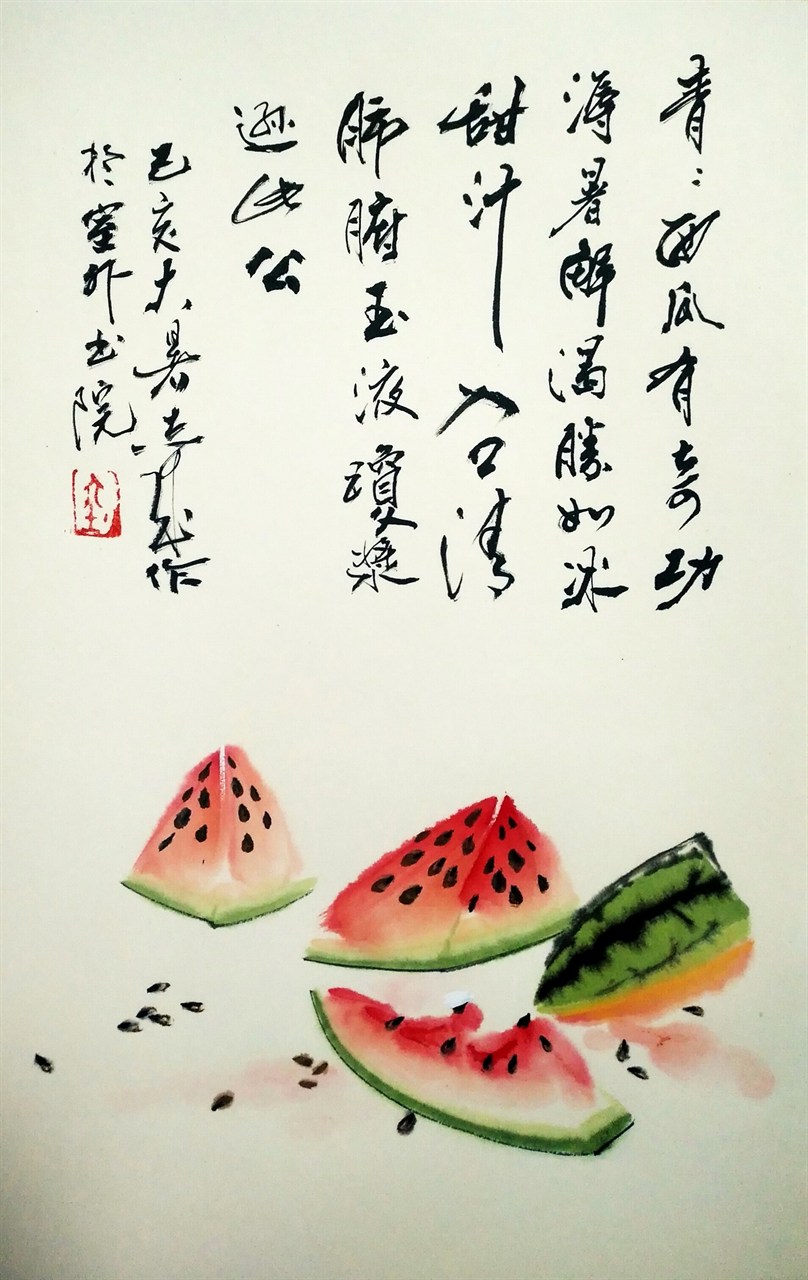 青〻西瓜有奇功
溽暑解渴勝如冰
甜汁入口清
肺腑玉液瓊漿
遜此公
己亥大暑志作
於塞外书院